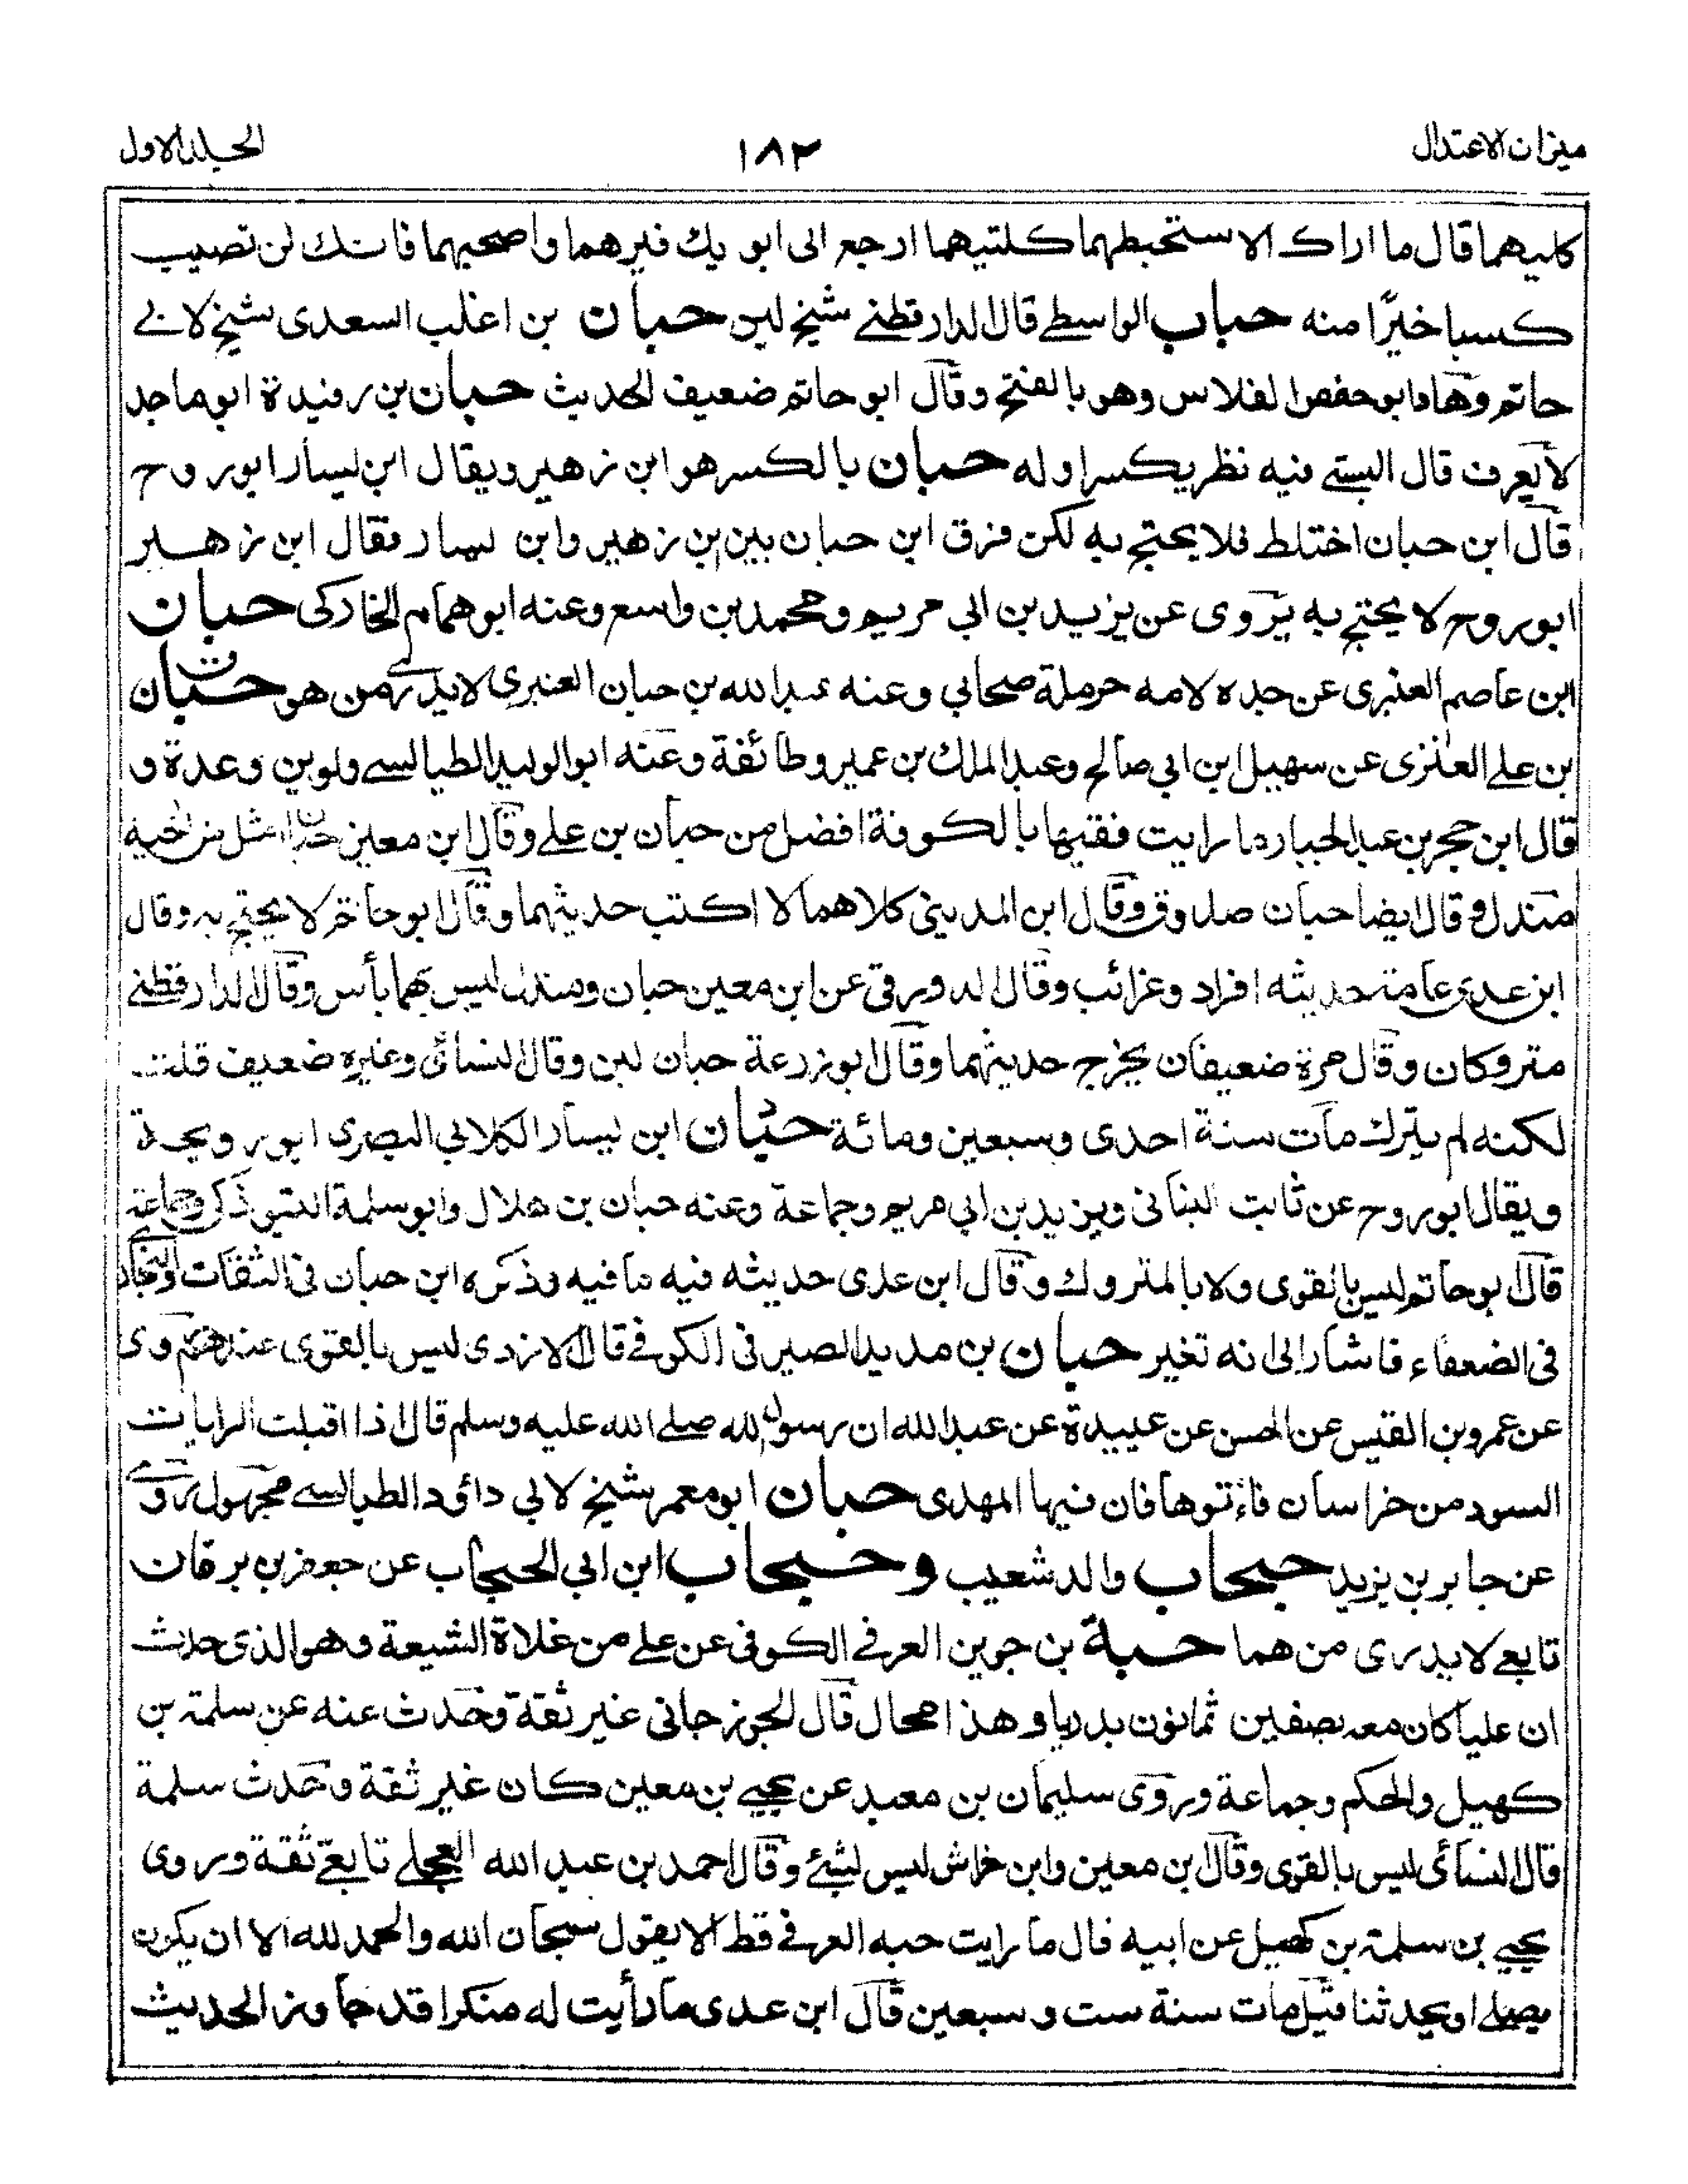 ميزان الاعتدال
١٨٢
الجلد الاول
كليهما قال ما اراك الا ستحبطهما كلتيهما ارجع الى ابو يك فبرهما واصحبهما فانك لن تصيب
كسبا خيرًا منه حباب الواسطے قال الدارقطنے شيخ لين حبان بن اغلب السعدى شيخ لابے
حاتم وهاه ابو حفص الفلاس وهو بالفتح وقال ابو حاتم ضعيف الحديث حبان بن رفيدة ابو ماجد
لا يعرف قال البستے فيه نظر يكسر اوله حبان بالكسر هو ابن زهير ويقال ابن يسار ابو روح
قال ابن حبان اختلط فلا يحتج به لكن فرق ابن حبان بين بن زهير وابن يسار فقال ابن زهير
ابو روح لا يحتج به يروى عن يزيد بن ابي مريم ومحمد بن واسع وعنه ابو همام الخاركى حبان
ابن عاصم العنبرى عن جده لامه حرملة صحابي وعنه عبد الله بن حبان العنبرى لا يدرے من هو حبان
بن علے العنزى عن سهيل ابن ابى صالح وعبد الملك بن عمير وطائفة وعنه ابو الوليد الطيالسے ولوين وعدة و
قال ابن حجر بن عبد الجبار ما رايت فقيها بالكوفة افضل من حبان بن علے وقال ابن معين حبان امثل من اخيه
مندل وقال ايضا حبان صدوق وقال ابن المدينى كلاهما لا اكتب حديثهما وقال ابو حاتم لا يحتج به وقال
ابن عدى عامة حديثه افراد وغرائب وقال الدورقى عن ابن معين حبان ومندل ليس بهما بأس وقال الدارقطنے
متروكان وقال مرة ضعيفان يخرج حديثهما وقال ابو زرعة حبان لين وقال النسائى وغيره ضعيف قلت
لكنه لم يترك مات سنة احدى وسبعين ومائة حبان ابن يسار الكلابي البصرى ابو رويحة
ويقال ابو روح عن ثابت البنانى ويزيد بن ابي مريم وجماعة وعنه حبان بن هلال وابو سلمة التبوذكى وجماعة
قال ابو حاتم ليس بالقوى ولا بالمتروك وقال ابن عدى حديثه فيه ما فيه وذكره ابن حبان فى الثقات والبخارى
فى الضعفاء فاشار الى انه تغير حبان بن مديد الصيرفى الكوفے قال الازدى ليس بالقوى عندهم روى
عن عمرو بن القيس عن الحسن عن عبيدة عن عبد الله ان رسول الله صلے الله عليه وسلم قال اذا اقبلت الرايات
السود من خراسان فائتوها فان فيها المهدى حبان ابو معمر شيخ لابي داؤد الطيالسے مجهول يروے
عن جابر بن يزيد حبحاب والد شعيب وحبحاب ابن ابي الحبحاب عن جعفر بن برقان
تابعے لا يدرى من هما حبة بن جوين العرفے الكوفى عن علے من غلاة الشيعة وهو الذى حدث
ان عليا كان معه بصفين ثمانون بدريا وهذا محال قال الجوزجانى غير ثقة وحدث عنه عن سلمة بن
كهيل والحكم وجماعة وروى سليمان بن معبد عن يحيے بن معين كان غير ثقة وحدث سلمة
قال النسائى ليس بالقوى وقال بن معين وابن خراش ليس بشئ وقال احمد بن عبد الله العجلے تابعے ثقة وروى
يحيے بن سلمة بن كهيل عن ابيه قال ما رايت حبه العرفے قط الا يقول سبحان الله والحمد لله الا ان يكون
يصلے او يحدثنا قيل مات سنة ست وسبعين قال ابن عدى ما رأيت له منكرا قد جاوز الحديث